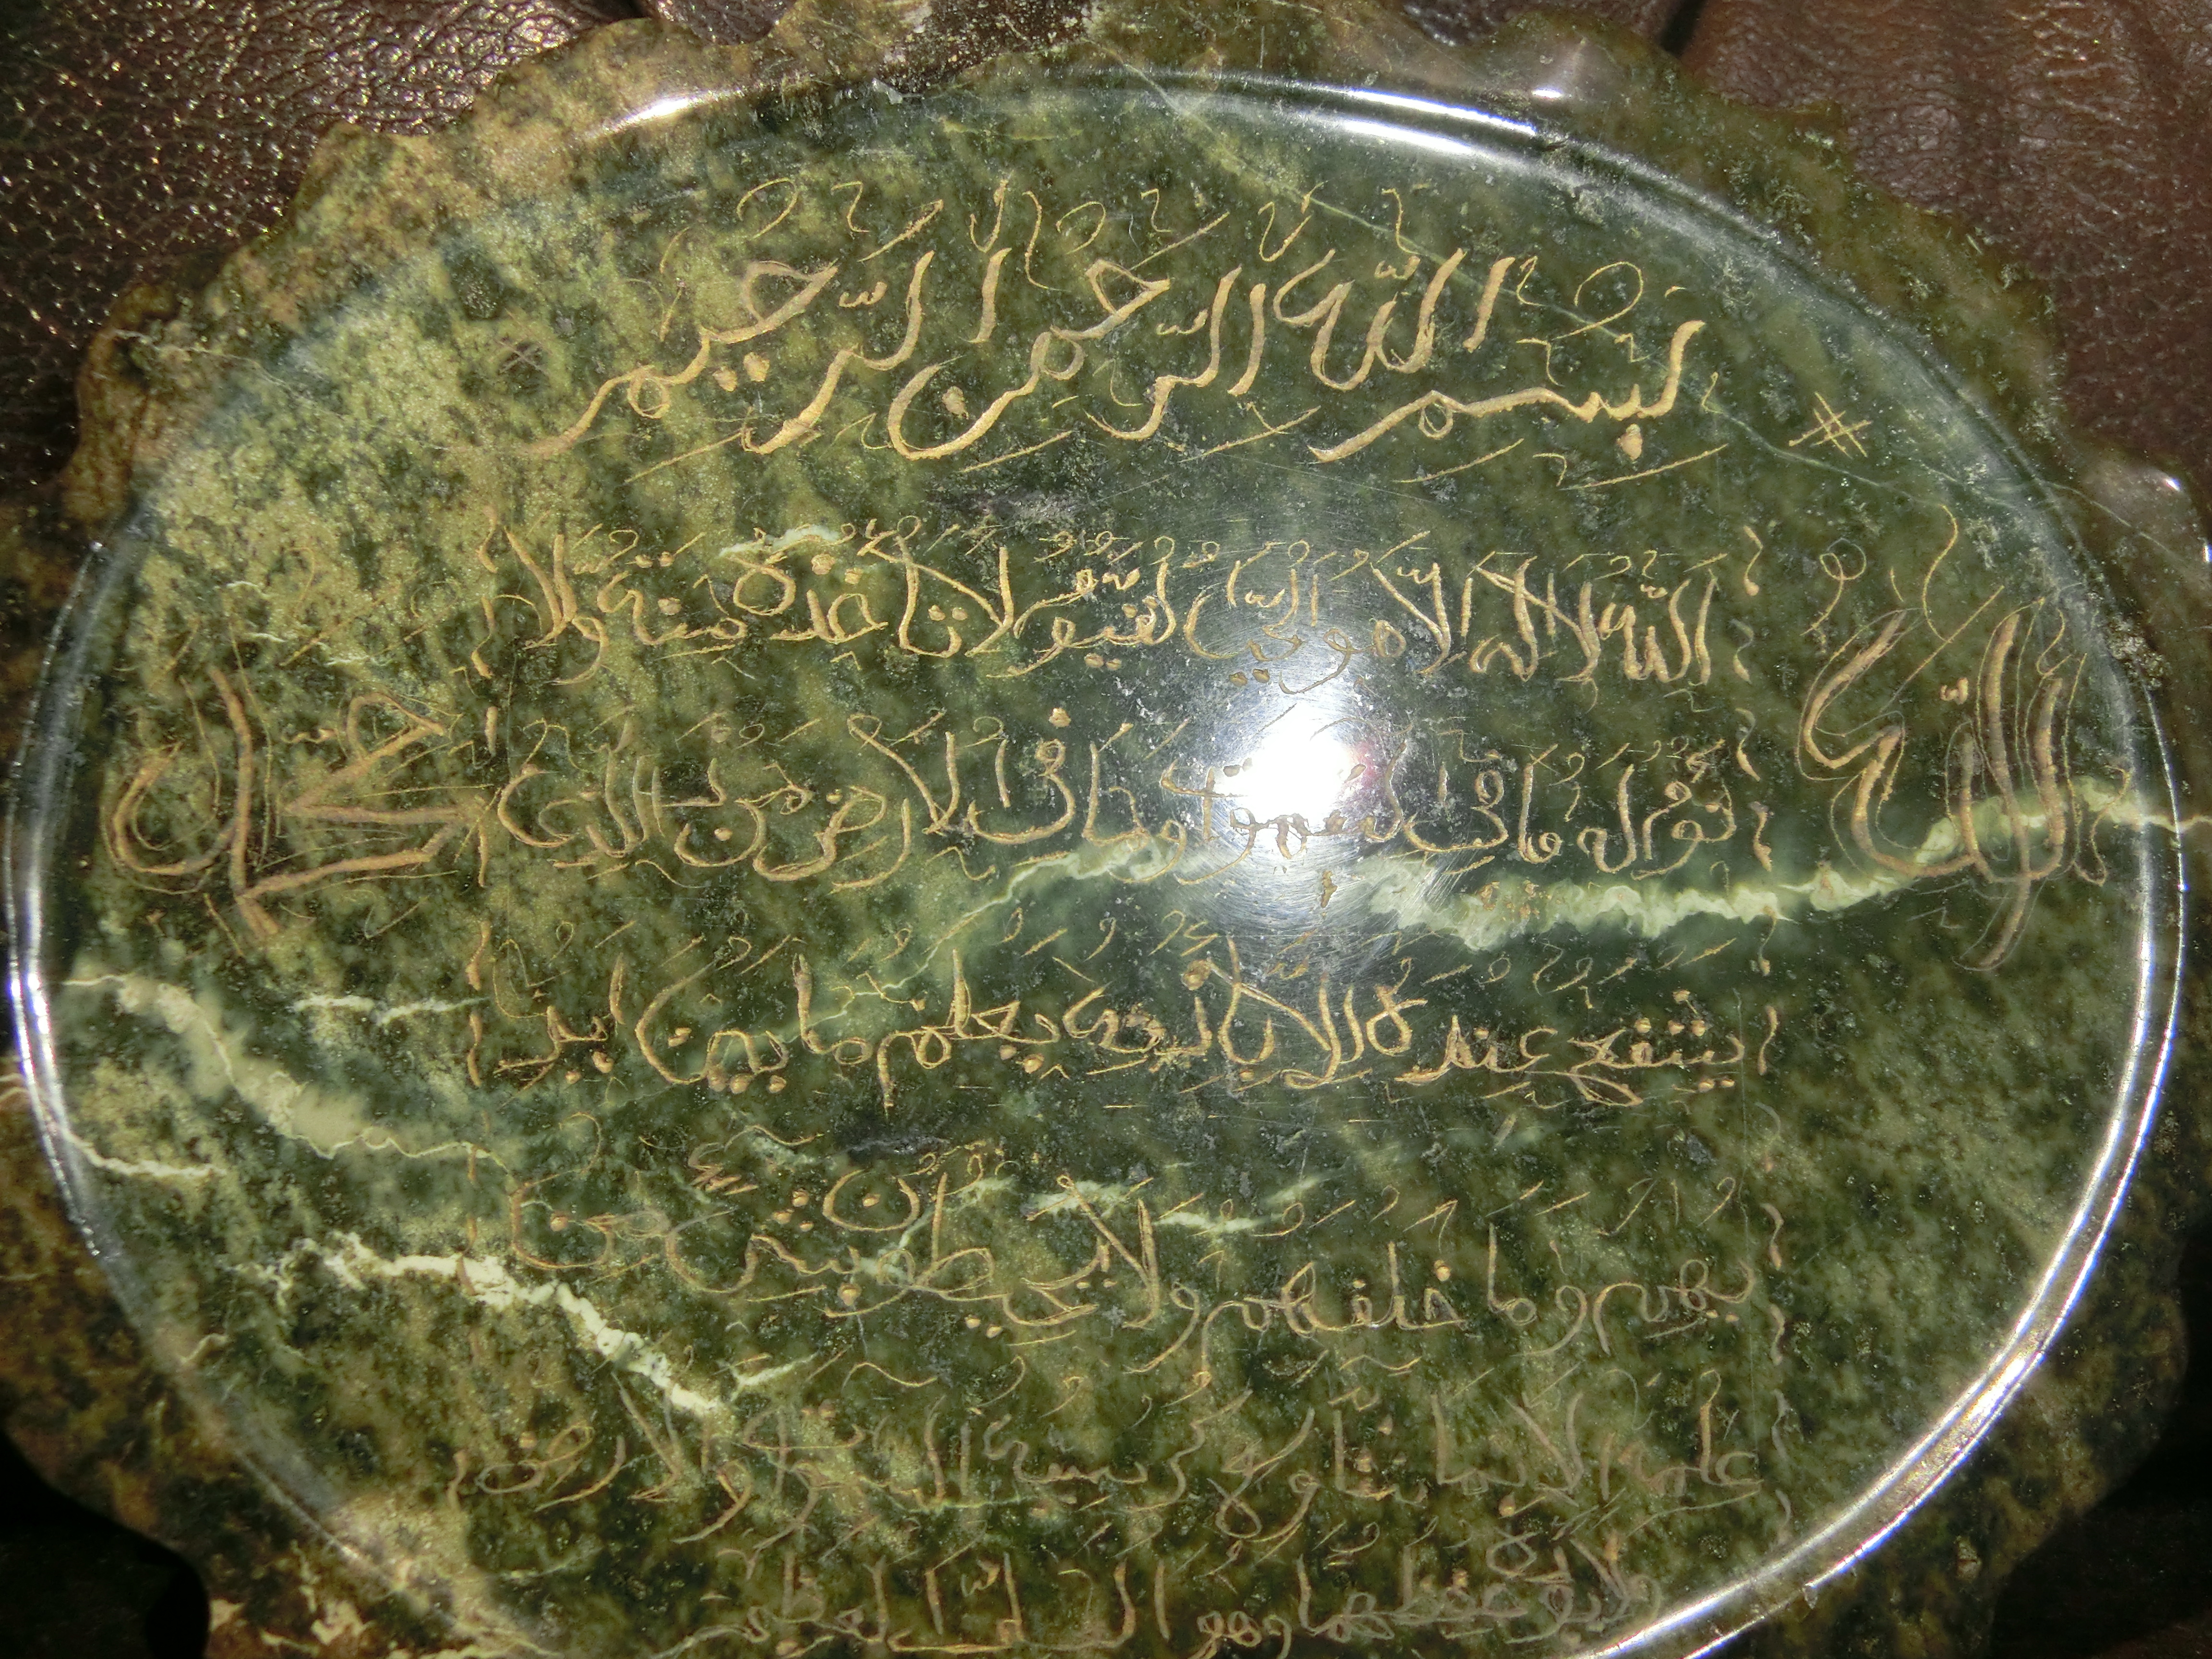 بسم الله الرحمن الرحيم
الله لا اله الا هو الحي القيوم لا تاخذه سنة ولا
الله
نوم له ما في السموات وما في الارض من الذي
محمد
يشفع عنده الا باذنه يعلم ما بين ايد
يهم وما خلفهم ولا يحيطون بشيء من
علمه الا بما شاء وسع كرسيه السموات والارض
ولا يؤده حفظهما وهو العلي العظيم